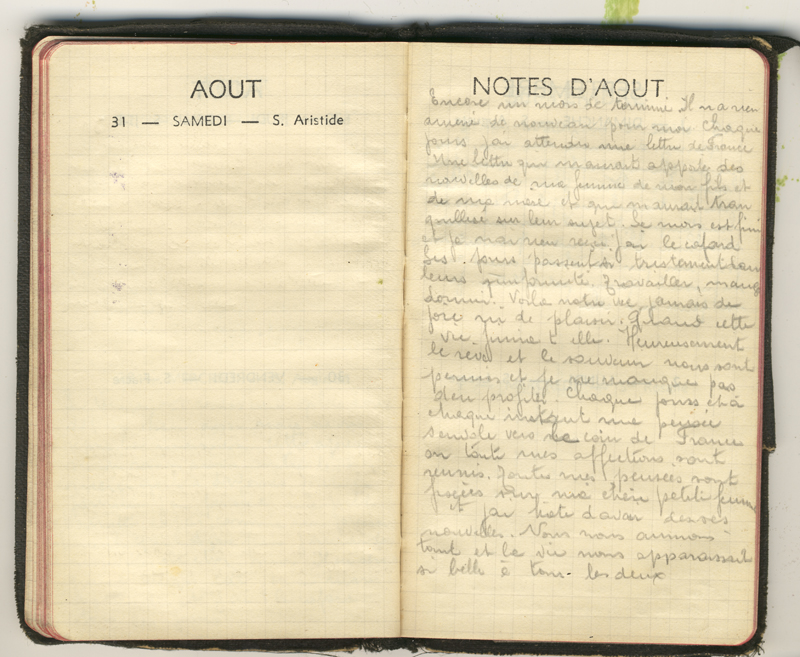 AOUT
31 — SAMEDI — S. Aristide
NOTES D'AOUT
Encore un mois de terminé. Il n a rien
amené de nouveau pour moi. Chaque
jours j'ai attendu une lettre de France
Une lettre qui m aurait apporté des
nouvelles de ma femme de mon fils et
de ma mère et qui m aurait tran
quilisé sur leur sujet. Le mois est fini
et je n'ai rien reçu. J'ai le cafard
Les jours passent si tristement dans
leurs uniformité. Travailler, mang
dormir. Voila notre vie, jamais de
joie ni de plaisir. Quand cette
vie finira t elle. Heureusement
le rêve et le souvenir nous sont
permis et je ne manque pas
d'en profiter. Chaque jours et à
chaque instant ma pensée
s'envole vers ce coin de France
ou toute mes affections sont
reunis. Toutes mes pensées sont
fixées sur ma chère petite femme
et j'ai hate d avoir de ses
nouvelles. Nous nous aimions
tant et la vie nous apparaissait
si belle à tous les deux